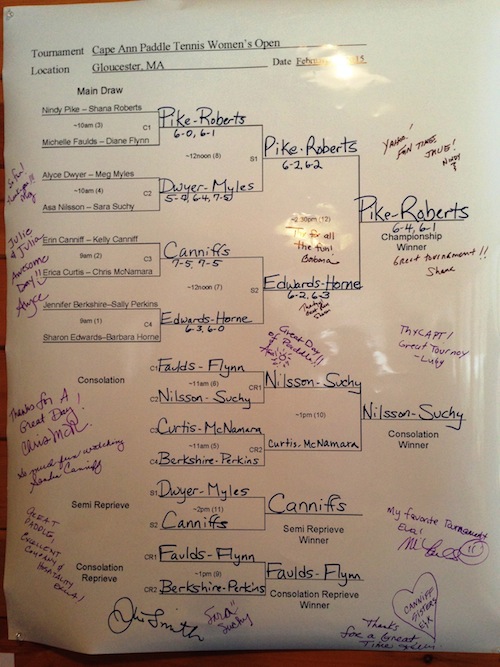 Tournament Cape Ann Paddle Tennis Women's Open
Location Gloucester, MA Date 15
Main Draw
Nindy Pike – Shana Roberts
~10am (3) C1
Michelle Faulds – Diane Flynn
Pike-Roberts
6-0, 6-1
~12noon (8) S1
Alyce Dwyer – Meg Myles
~10am (4) C2
Asa Nilsson – Sara Suchy
Dwyer-Myles
6-4, 7-5
Pike-Roberts
6-2, 6-2
~2:30pm (12)
Erin Canniff – Kelly Canniff
9am (2) C3
Erica Curtis – Chris McNamara
Canniffs
7-5, 7-5
~12noon (7) S2
Jennifer Berkshire–Sally Perkins
9am (1) C4
Sharon Edwards–Barbara Horne
Edwards-Horne
6-3, 6-0
Edwards-Horne
6-2, 6-3
Pike-Roberts
6-4, 6-1
Championship
Winner
Great tournament!!
Shana
for all
the fun!
Barbara
Great Day
of Paddle!!
Julie
& Julia
Awesome
Day!!
Alyce
THX CAPT!
Great Tourney
-Luby
Consolation
C1 Faulds-Flynn
~11am (6) CR1
C2 Nilsson-Suchy
Nilsson-Suchy
~1pm (10)
C3 Curtis-McNamara
~11am (5) CR2
C4 Berkshire-Perkins
Curtis-McNamara
Nilsson-Suchy
Consolation
Winner
Thanks for A
Great Day!
Chris McN
So much fun watching
Sandra Canniff
Semi Reprieve
S1 Dwyer-Myles
~2pm (11)
S2 Canniffs
Canniffs
Semi Reprieve
Winner
My favorite Tournament
Eva!
GREAT
PADDLE,
EXCELLENT
COMPANY &
HOSPITALITY
Consolation
Reprieve
CR1 Faulds-Flynn
~1pm (9)
CR2 Berkshire-Perkins
Faulds-Flynn
Consolation Reprieve
Winner
CANNIFF
SISTERS
E & K
Smith
SARA
Suchy
Thanks
for a Great
Time